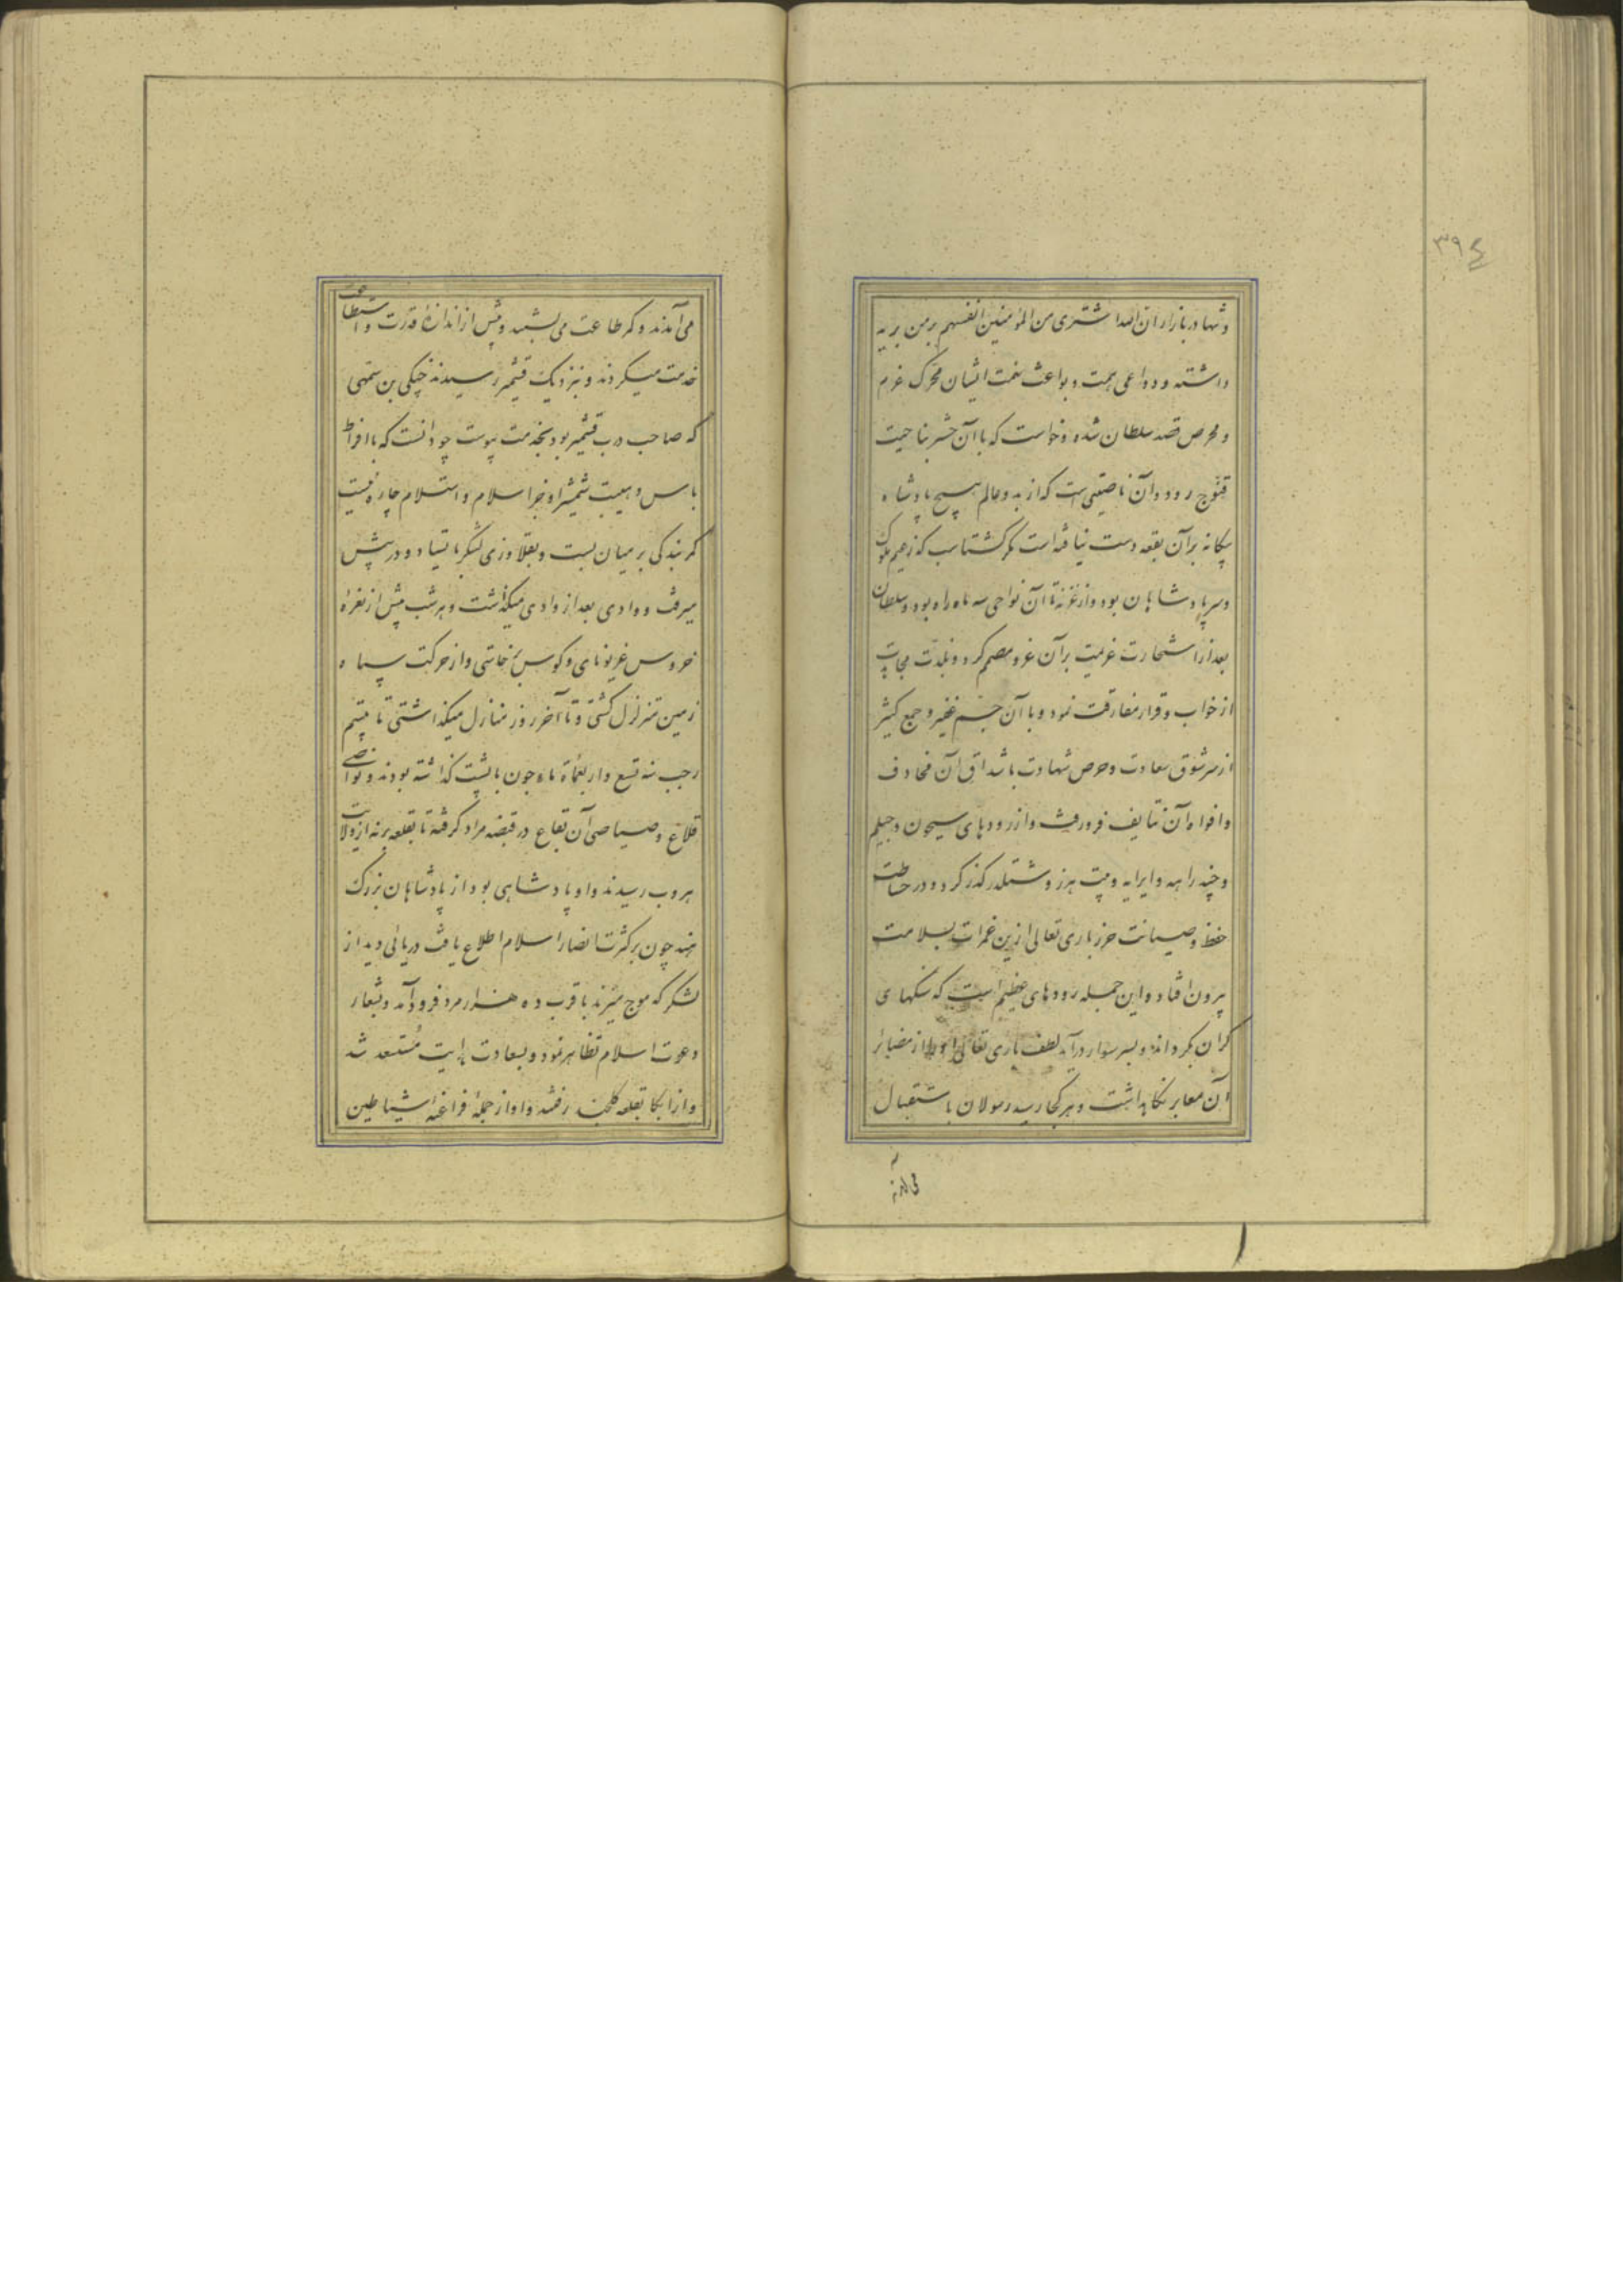 ۳۹۴
و تنها در بازار ان الله اشتری من المؤمنین انفسهم بر من یرید
داشته و دواعی همت و بواعث نهمت ایشان محرک عزم
و محرص قصد سلطان شده و خواست که با آن حشر بناحیت
قنوج رود و آن ناحیتی است که از بدو عالم هیچ پادشاه
بیکانه بر آن بقعه دست نیافته است مکر کشتاسب که زعیم ملوک
و سر پادشاهان بود و از غزنه تا آن نواحی سه ماه راه بود و سلطان
بعد از استخارت عزیمت بر آن غزو مصمم کرد و بلذت مجاهدت
از خواب و قرار مفارقت نمود و با آن جم غفیر و جمع کثیر
از سر شوق سعادت و حرص شهادت باشداق آن مخاوف
و افواه آن تنایف فرو رفت و از رودهای سیحون و جیلم
و چند راهه و ایرایه و بیت هرز و شتلدر کذر کرد و در حیاطت
حفظ و صیانت حرز باری تعالی ازین غمرات بسلامت
بیرون افتاد و این جمله رودهای عظیم است که سنکهای
کران بکرداند و بسر سوار درآید لطف باری تعالی او را از مضایر
آن معابر نکاهداشت و هر کجا رسید رسولان باستقبال
می آمدند
می آمدند و کمر طاعت می بستند و بیش از اندازهٔ قدرت و استطاعت
خدمت میکردند و بنزدیک قشمیر رسیدند جنکی بن سمهی
که صاحب درب قشمیر بود بخدمت پیوست چو دانست که با افراط
باس و هیبت شمشیر او جز اسلام و استسلام چاره نیست
کمر بندکی بر میان بست و بقلاوزی لشکر بایستاد و در پیش
میرفت و وادی بعد از وادی میکذشت و هر شب پیش از نعرهٔ
خروس غریو نای و کوس برخاستی و از حرکت سپاه
زمین متزلزل کشتی و تا آخر روز منازل میکذاشتی تا بیستم
رجب سنه تسع و اربعمأة ماه جون با پشت کذاشته بودند و نواصی
قلاع و صیاصی آن بقاع در قبضه مراد کرفته تا بقلعه برنه از ولایت
هروب رسیدند و او پادشاهی بود از پادشاهان بزرک
هند چون بر کثرت انصار اسلام اطلاع یافت دریائی دید از
لشکر که موج میزند با قرب ده هزار مرد فرود آمد و بشعار
دعوت اسلام تظاهر نمود و بسعادت هدایت مستسعد شد
و از انجا بقلعه کلجند رفتند و او از جملهٔ فراعنهٔ شیاطین